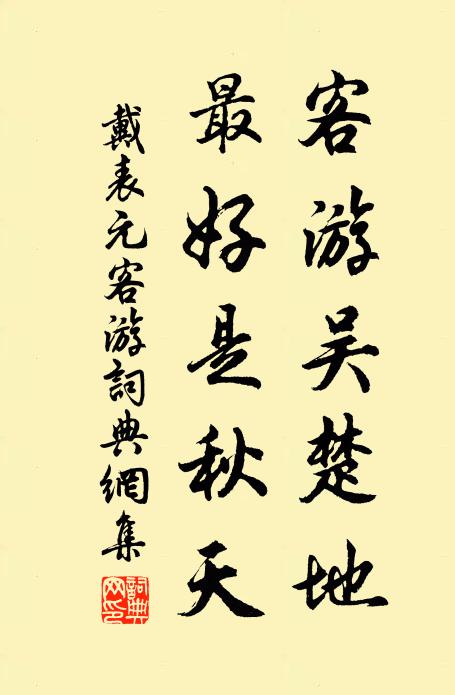 客游吴楚地
最好是秋天
戴表元客游詞典網集
詞典网印